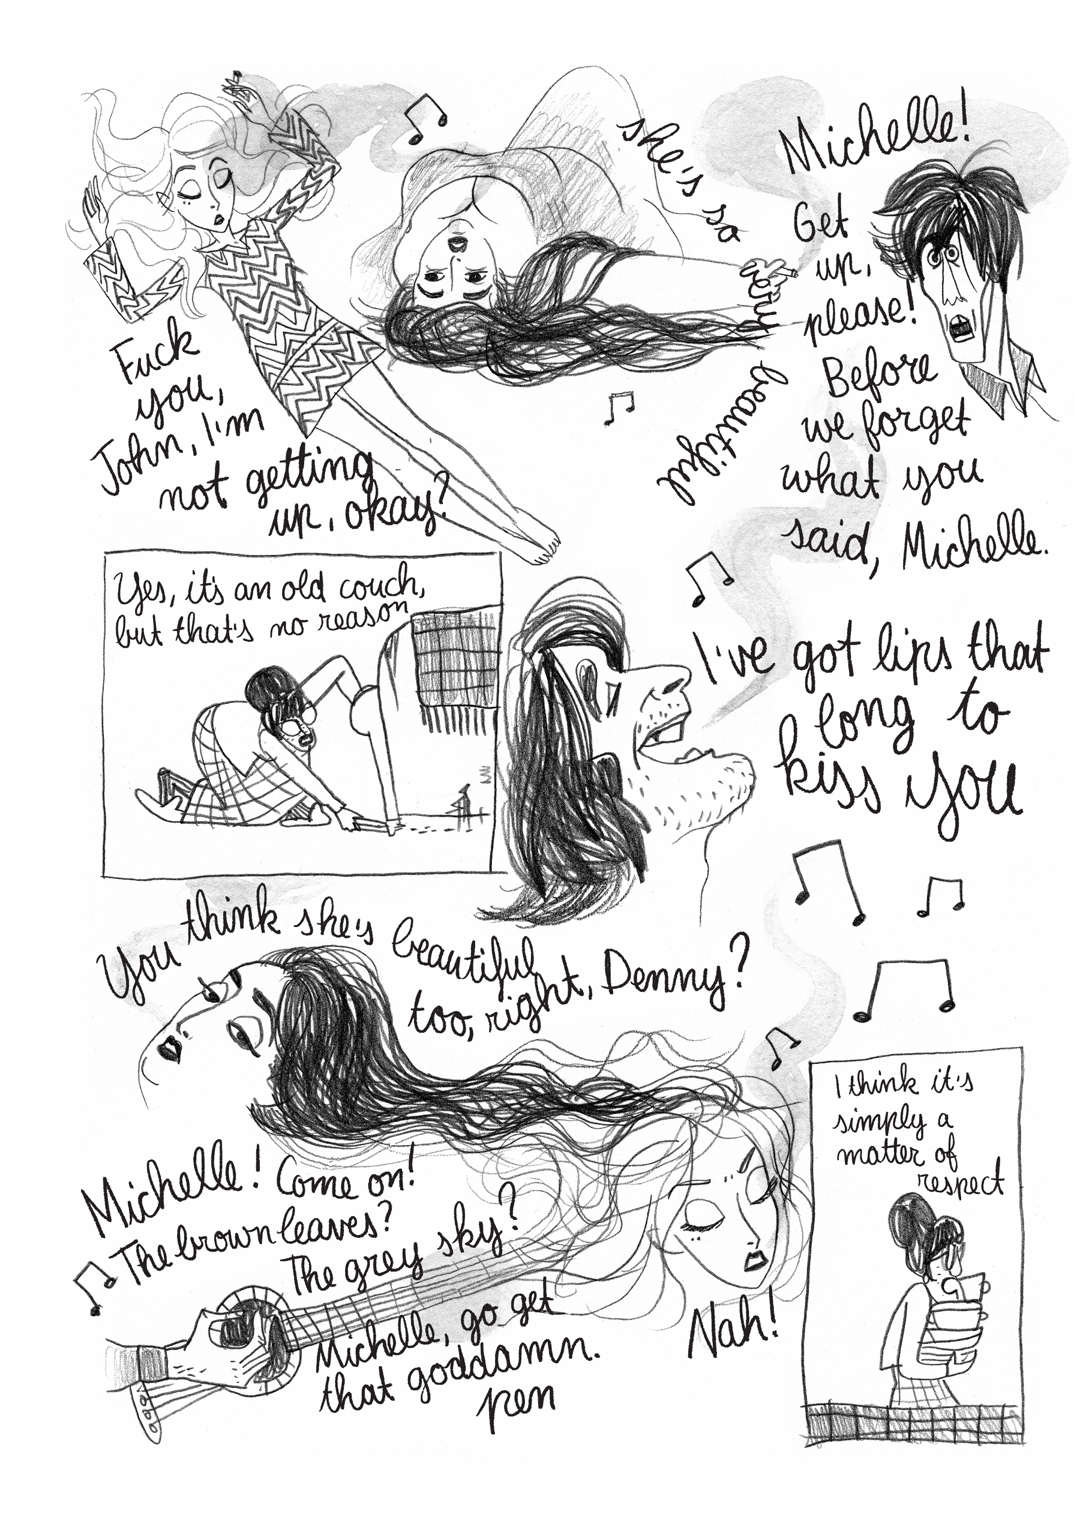 she's so
very
beautiful
Michelle!
Get
up,
please!
Before
we forget
what you
said, Michelle.
Fuck
you,
John, I'm
not getting
up, okay?
Yes, it's an old couch,
but that's no reason
I've got lips that
long to
kiss you
You think she's beautiful
too, right, Denny?
Michelle! Come on!
The brown leaves?
The grey sky?
Michelle, go get
that goddamn.
pen
Nah!
I think it's
simply a
matter of
respect